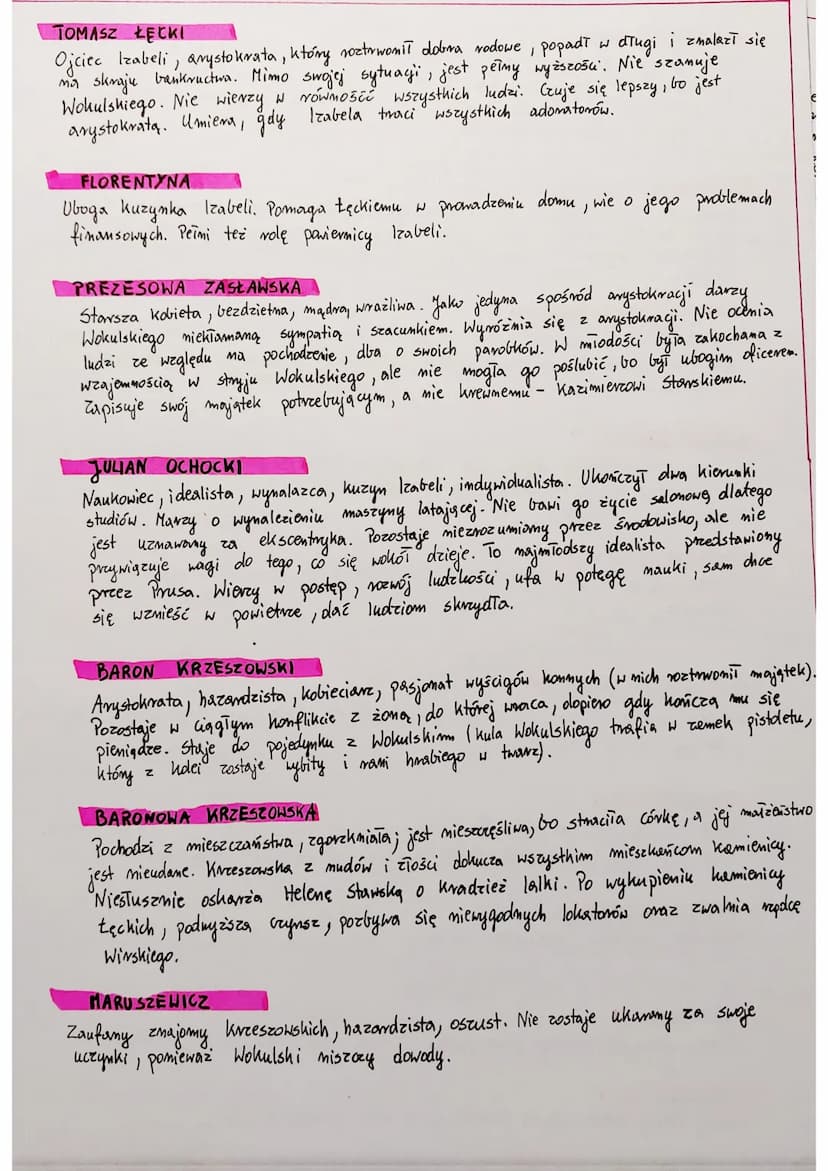 TOMASZ ŁĘCKI
Ojciec Izabeli, arystokrata, który roztrwonił dobra rodowe, popadł w długi i znalazł się
na skraju bankructwa. Mimo swojej sytuacji, jest pełny wyższości. Nie szanuje
Wokulskiego. Nie wierzy w równość wszystkich ludzi. Czuje się lepszy, bo jest
arystokratą. Umiera, gdy Izabela traci wszystkich adoratorów.
FLORENTYNA
Uboga kuzynka Izabeli. Pomaga Łęckiemu w prowadzeniu domu, wie o jego problemach
finansowych. Pełni też rolę powiernicy Izabeli.
PREZESOWA ZASŁAWSKA
Starsza kobieta, bezdzietna, mądra, wrażliwa. Jako jedyna spośród arystokracji darzy
Wokulskiego niekłamaną sympatią i szacunkiem. Wyróżnia się z arystokracji. Nie ocenia
ludzi ze względu na pochodzenie, dba o swoich parobków. W młodości była zakochana z
wzajemnością w stryju Wokulskiego, ale nie mogła go poślubić, bo był ubogim oficerem.
Zapisuje swój majątek potrzebującym, a nie krewnemu - Kazimierzowi Starskiemu.
JULIAN OCHOCKI
Naukowiec, idealista, wynalazca, kuzyn Izabeli, indywidualista. Ukończył dwa kierunki
studiów. Marzy o wynalezieniu maszyny latającej. Nie bawi go życie salonowe, dlatego
jest uznawany za ekscentryka. Pozostaje niezrozumiany przez środowisko, ale nie
przywiązuje wagi do tego, co się wokół dzieje. To najmłodszy idealista przedstawiony
przez Prusa. Wierzy w postęp, rozwój ludzkości, ufa w potęgę nauki, sam chce
się wznieść w powietrze, dać ludziom skrzydła.
BARON KRZESZOWSKI
Arystokrata, hazardzista, kobieciarz, pasjonat wyścigów konnych (w nich roztrwonił majątek).
Pozostaje w ciągłym konflikcie z żoną, do której wraca, dopiero gdy kończą mu się
pieniądze. Staje do pojedynku z Wokulskim (kula Wokulskiego trafia w zamek pistoletu,
który z kolei zostaje wybity i rani hrabiego w twarz).
BARONOWA KRZESZOWSKA
Pochodzi z mieszczaństwa, zgorzkniała; jest nieszczęśliwa, bo straciła córkę, a jej małżeństwo
jest nieudane. Krzeszowska z nudów i złości dokucza wszystkim mieszkańcom kamienicy.
Niesłusznie oskarża Helenę Stawską o kradzież lalki. Po wykupieniu kamienicy
Łęckich, podwyższa czynsz, pozbywa się niewygodnych lokatorów oraz zwalnia rządcę
Wirskiego.
MARUSZEWICZ
Zaufany znajomy Krzeszowskich, hazardzista, oszust. Nie zostaje ukarany za swoje
uczynki, ponieważ Wokulski niszczy dowody.